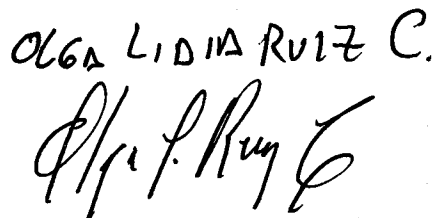 OLGA LIDIA RUIZ C.
Olga L. Ruiz C